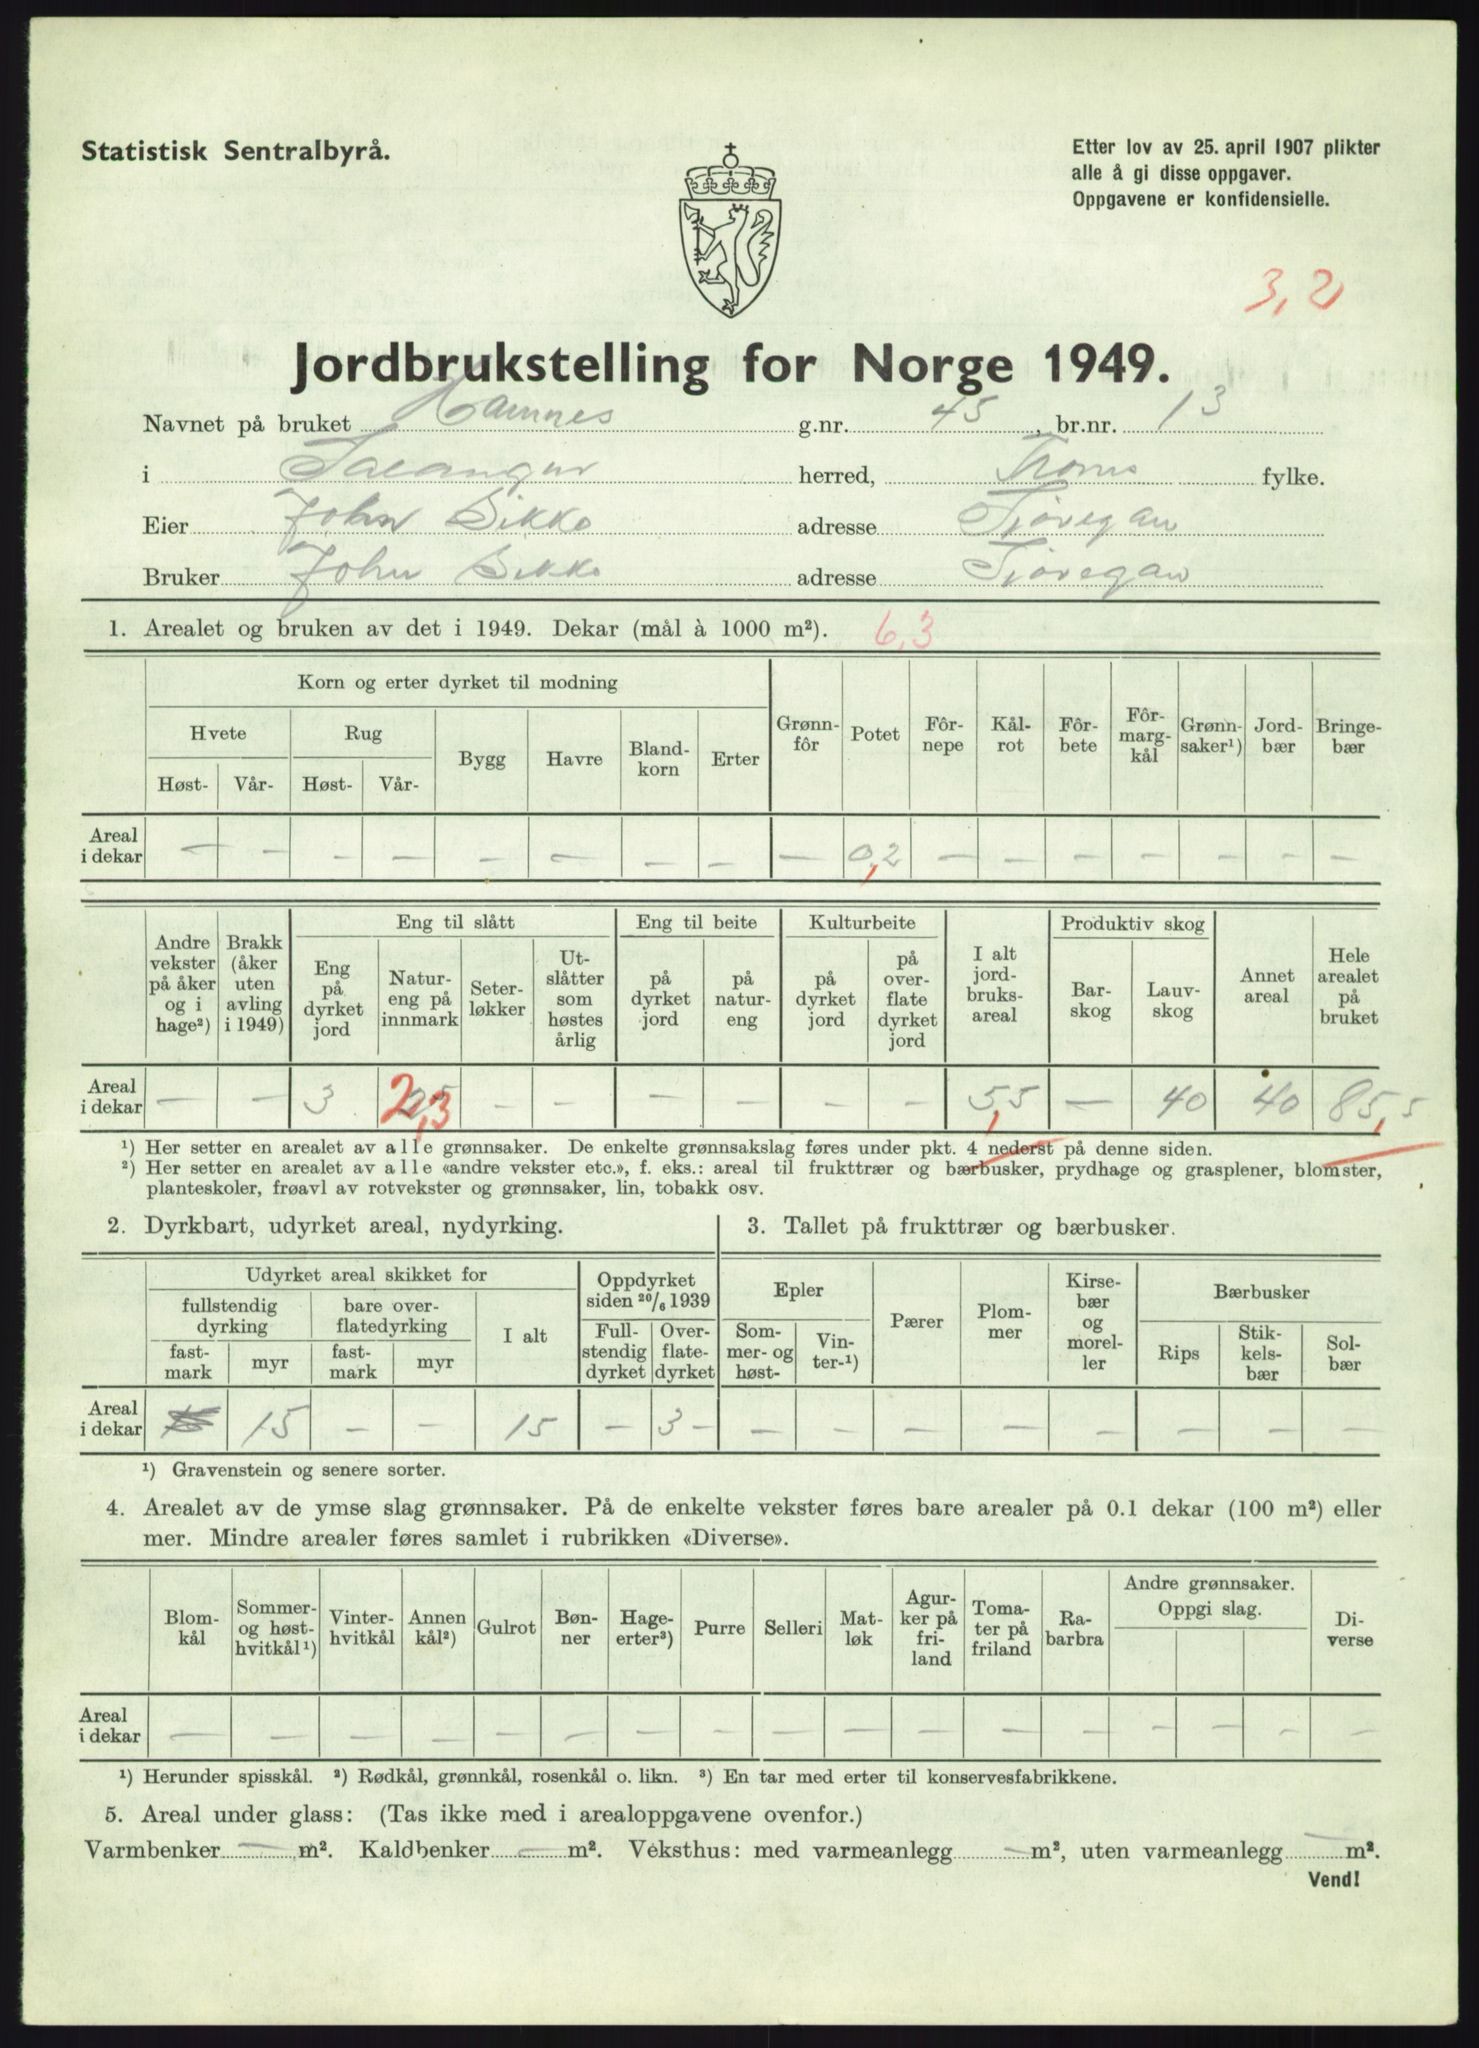 Statistisk Sentralbyrå.
Etter lov av 25. april 1907 plikter
alle å gi disse oppgaver.
Oppgavene er konfidensielle.
3,2
Jordbrukstelling for Norge 1949.
Navnet på bruket Hamnes g.nr. 45, br.nr. 13
i Salangen herred, Troms fylke.
Eier John Sikko adresse Sjøvegan
Bruker John Sikko adresse Sjøvegan
1. Arealet og bruken av det i 1949. Dekar (mål à 1000 m²). 6,3
Korn og erter dyrket til modning
Hvete Rug Bygg Havre Blandkorn Erter Grønnfôr Potet Fôrnepe Kålrot Fôrbete Fôrmargkål Grønnsaker¹) Jordbær Bringebær
Høst- Vår- Høst- Vår-
Areal i dekar — — — — — — — — — 0,2 — — — — — — —
Andre vekster på åker og i hage²) Brakk (åker uten avling i 1949) Eng til slått Eng til beite Kulturbeite I alt jordbruksareal Produktiv skog Annet areal Hele arealet på bruket
Eng på dyrket jord Natureng på innmark Seterløkker Utslåtter som høstes årlig på dyrket jord på natureng på dyrket jord på overflatedyrket jord Barskog Lauvskog
Areal i dekar — — 3 2,3 — — — — — — 5,5 — 40 40 85,5
¹) Her setter en arealet av alle grønnsaker. De enkelte grønnsakslag føres under pkt. 4 nederst på denne siden.
²) Her setter en arealet av alle «andre vekster etc.», f. eks.: areal til frukttrær og bærbusker, prydhage og grasplener, blomster,
planteskoler, frøavl av rotvekster og grønnsaker, lin, tobakk osv.
2. Dyrkbart, udyrket areal, nydyrking.
Udyrket areal skikket for Oppdyrket siden 20/6 1939
fullstendig dyrking bare overflatedyrking I alt Fullstendig dyrket Overflatedyrket
fastmark myr fastmark myr
Areal i dekar 15 — — 15 — 3 —
¹) Gravenstein og senere sorter.
3. Tallet på frukttrær og bærbusker.
Epler Pærer Plommer Kirsebær og moreller Bærbusker
Sommer- og høst- Vinter-¹) Rips Stikkelsbær Solbær
— — — — — — — —
4. Arealet av de ymse slag grønnsaker. På de enkelte vekster føres bare arealer på 0.1 dekar (100 m²) eller
mer. Mindre arealer føres samlet i rubrikken «Diverse».
Blomkål Sommer- og høsthvitkål¹) Vinterhvitkål Annen kål²) Gulrot Bønner Hageerter³) Purre Selleri Matløk Agurker på friland Tomater på friland Rabarbra Andre grønnsaker. Oppgi slag. Diverse
Areal i dekar — — — — — — — — — — — — — — — — —
¹) Herunder spisskål. ²) Rødkål, grønnkål, rosenkål o. likn. ³) En tar med erter til konservesfabrikkene.
5. Areal under glass: (Tas ikke med i arealoppgavene ovenfor.)
Varmbenker — m². Kaldbenker — m². Veksthus: med varmeanlegg — m², uten varmeanlegg — m².
Vend!